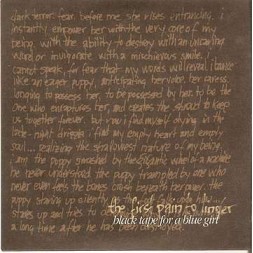 dark terror fear. before me she rises entrancing. i
instantly empower her with the very core of my
being, with the ability to destroy with an uncaring
word or invigorate with a mischievous smile. i
cannot speak, for fear that my words will entail. i wait
like an eager puppy, anticipating her voice, her caress.
longing to possess her, to be possessed by her. to be the
one who enraptures her, and creates the shroud to keep
us together forever. but now i find myself drowning in the
late-night dripples. i find my empty heart and empty
soul... realizing the stalwart nature of my being.
i am the puppy smashed by the gigantic wheel of a machine
he never understood. the puppy trampled by one who
never even sees the bones crush beneath her. the
puppy staring up silently
stares up and tries to
a long time after he has been destroyed.
the first pain to linger
black tape for a blue girl